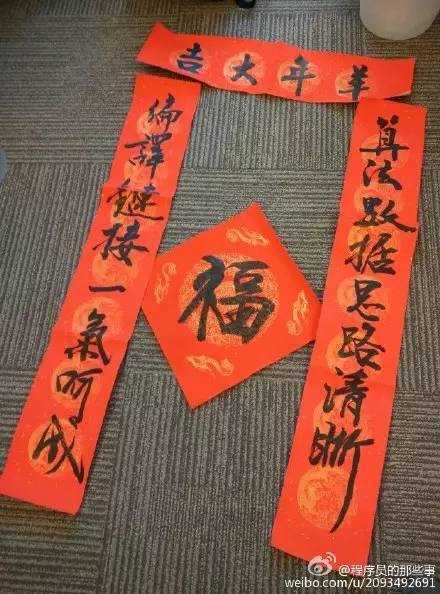 羊年大吉
算法数据思路清晰
編譯鏈接一氣呵成
福
@程序员的那些事
weibo.com/u/2093492691